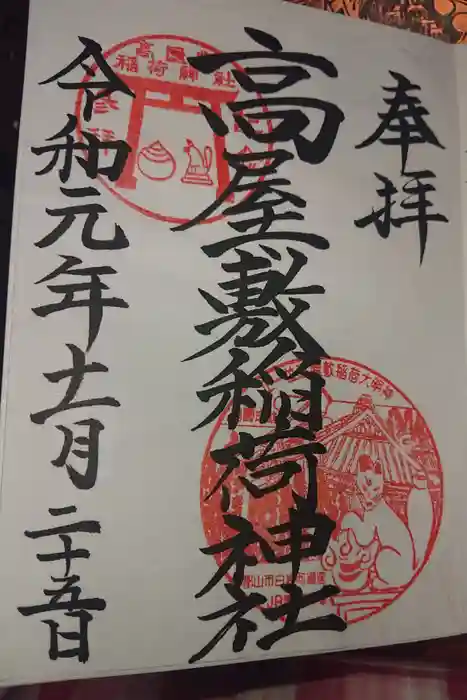 奉拝
高屋敷稲荷神社
令和元年十一月二十五日
高屋敷
稲荷神社
参拝
敷稲荷大明神
郡山市白岩町